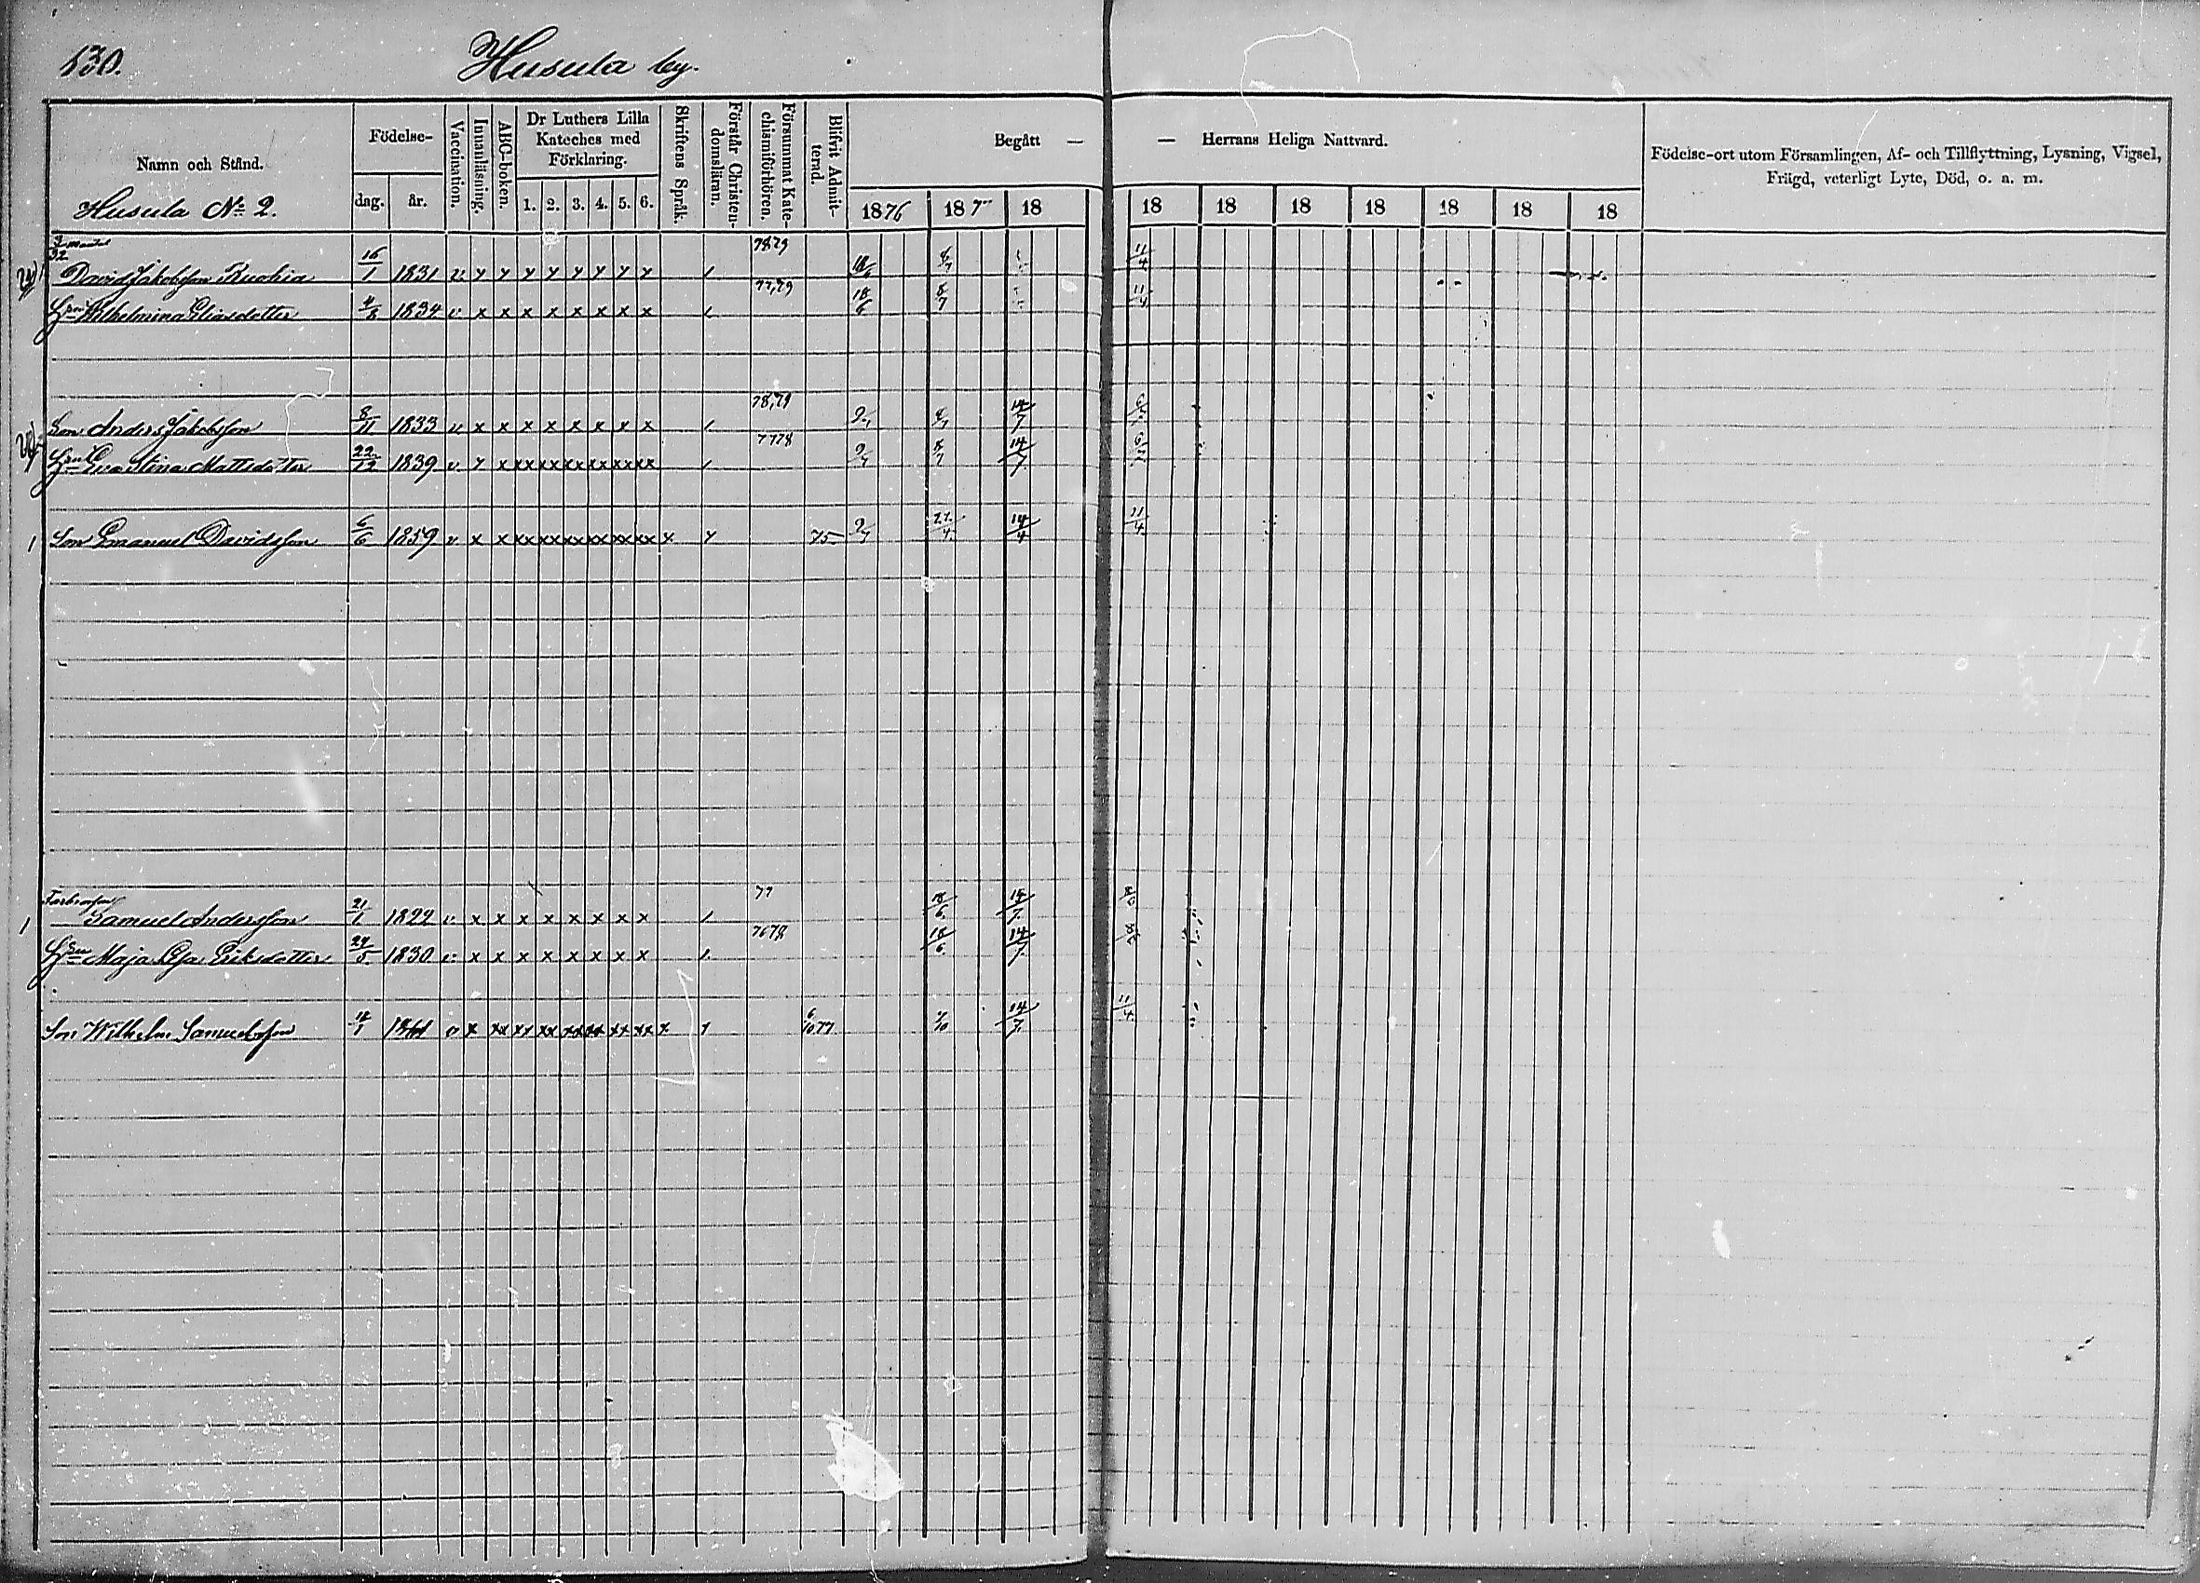 130. Husula by.
Namn och Stånd. Födelse- dag. år. Vaccination. Innanläsning. ABC-boken. Dr Luthers Lilla Kateches med Förklaring. 1. 2. 3. 4. 5. 6. Skriftens Språk. Förstår Christendomsläran. Försummat Katechismiförhören. Blifvit Admitterad. Begått — — Herrans Heliga Nattvard. Födelse-ort utom Församlingen, Af- och Tillflyttning, Lysning, Vigsel,
Frägd, veterligt Lyte, Död, o. a. m.
Husula No 2. 1876 187 18 18 18 18 18 18 18 18
David Jakobsson 16/1 1831 v 78 79 18/6 8/7 11/4
Hru Wilhelmina Eliasdotter 4/8 1834 v x x x x x x x x 77,79 18/6 8/7 11/4
Son Anders Jakobsson 8/11 1833 v x x x x x x x x 78,79 14/7
Hru Mattsdotter 22/12 1839 v x xx xx xx xx xx xx 77 78 8/7 14/7
1 Son Emanuel Davidsson 6/6 1859 v x x xx xx xx xx xx xx x 75 22/4 14/4 11/4
1 Farbrorson Samuel Andersson 21/1 1822 v x x x x x x x x 77 18/6 14/7
Hru Maja Eriksdotter 1830 v x x x x x x x x 76 78 18/6 14/7
Son Wilhelm Samuelsson 14/1 v x xx xx xx xx xx xx xx x 6/10 77 14/7 11/4